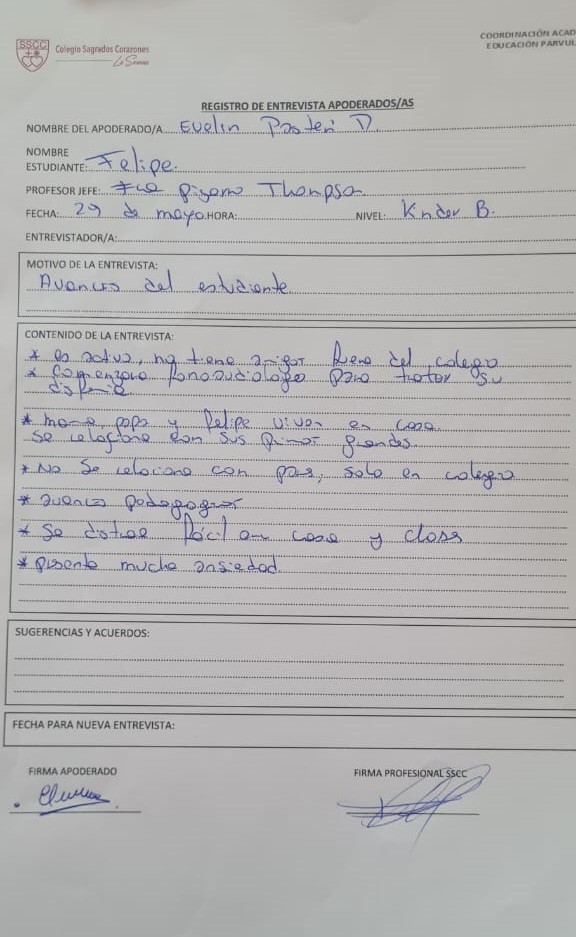 SSCC
Colegio Sagrados Corazones
La Serena
COORDINACIÓN ACAD
EDUCACIÓN PARVUL
REGISTRO DE ENTREVISTA APODERADOS/AS
NOMBRE DEL APODERADO/A Evelin Pasten D
NOMBRE
ESTUDIANTE: Felipe.
PROFESOR JEFE: Fca Pizarro Thompson
FECHA: 29 de mayo. HORA: NIVEL: Knder B.
ENTREVISTADOR/A:
MOTIVO DE LA ENTREVISTA:
Avances del estudiante
CONTENIDO DE LA ENTREVISTA:
* es activo, no tiene amigos fuera del colegio
* Comenzara fonoaudiologo para tratar su
* mama, papa y Felipe viven en casa.
se relaciona con sus primos grandes.
* No se relaciona con pares, solo en colegio
* avances pedagogicos
* Se distrae fácil en casa y clases
* presenta mucha ansiedad.
SUGERENCIAS Y ACUERDOS:
FECHA PARA NUEVA ENTREVISTA:
FIRMA APODERADO FIRMA PROFESIONAL SSCC